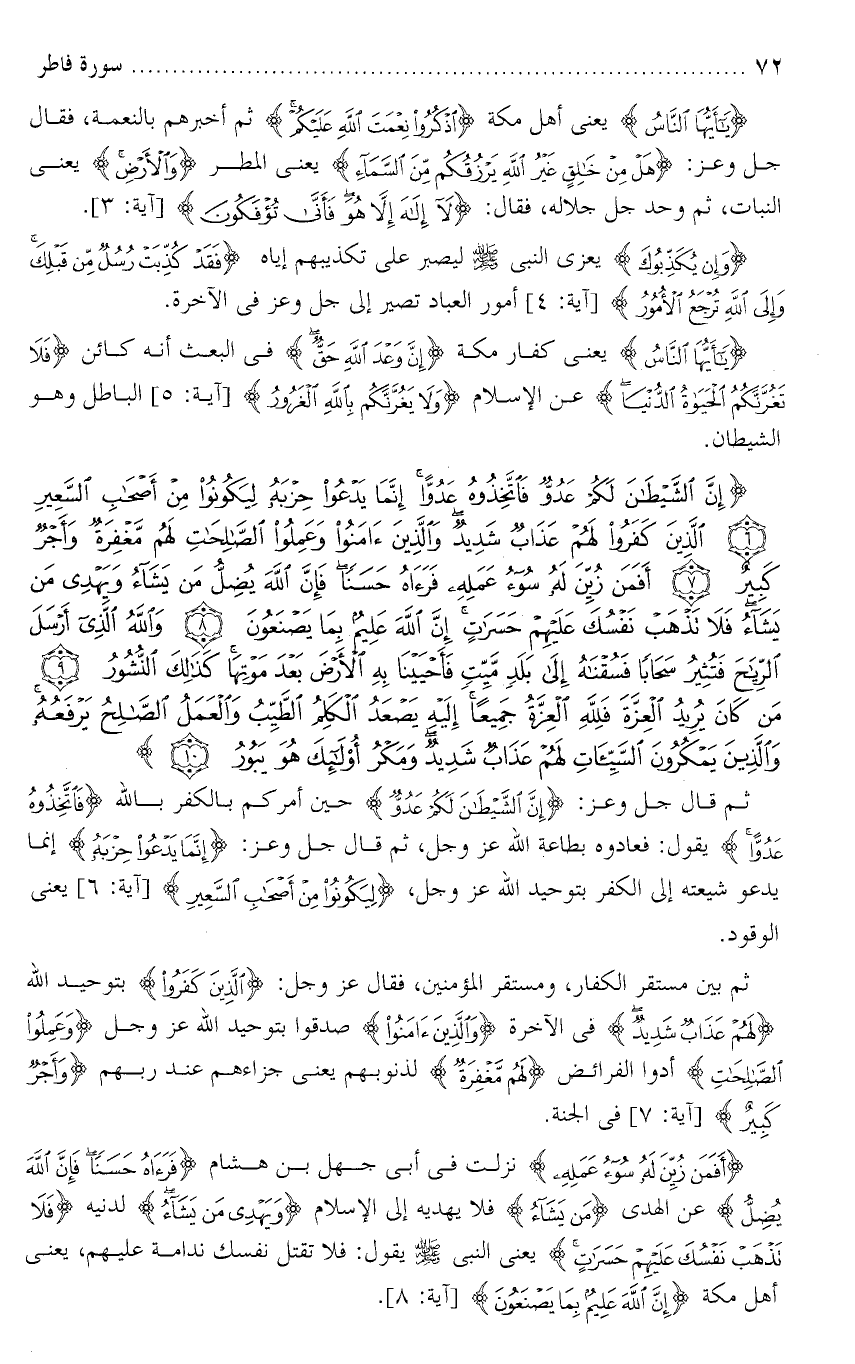 ٧٢ ........................................................................ سورة فاطر
﴿يَٰٓأَيُّهَا ٱلنَّاسُ﴾ يعنى أهل مكة ﴿ٱذْكُرُوا۟ نِعْمَتَ ٱللَّهِ عَلَيْكُمْ﴾ ثم أخبرهم بالنعمة، فقال
جل وعز: ﴿هَلْ مِنْ خَٰلِقٍ غَيْرُ ٱللَّهِ يَرْزُقُكُم مِّنَ ٱلسَّمَآءِ﴾ يعنى المطر ﴿وَٱلْأَرْضِ﴾ يعنى
النبات، ثم وحد جل جلاله، فقال: ﴿لَآ إِلَٰهَ إِلَّا هُوَ فَأَنَّىٰ تُؤْفَكُونَ﴾ [آية: ٣].
﴿وَإِن يُكَذِّبُوكَ﴾ يعزى النبى ﷺ ليصبر على تكذيبهم إياه ﴿فَقَدْ كُذِّبَتْ رُسُلٌ مِّن قَبْلِكَ
وَإِلَى ٱللَّهِ تُرْجَعُ ٱلْأُمُورُ﴾ [آية: ٤] أمور العباد تصير إلى جل وعز فى الآخرة.
﴿يَٰٓأَيُّهَا ٱلنَّاسُ﴾ يعنى كفار مكة ﴿إِنَّ وَعْدَ ٱللَّهِ حَقٌّ﴾ فى البعث أنه كائن ﴿فَلَا
تَغُرَّنَّكُمُ ٱلْحَيَوٰةُ ٱلدُّنْيَا﴾ عن الإسلام ﴿وَلَا يَغُرَّنَّكُم بِٱللَّهِ ٱلْغَرُورُ﴾ [آية: ٥] الباطل وهو
الشيطان.
﴿إِنَّ ٱلشَّيْطَٰنَ لَكُمْ عَدُوٌّ فَٱتَّخِذُوهُ عَدُوًّا إِنَّمَا يَدْعُوا۟ حِزْبَهُۥ لِيَكُونُوا۟ مِنْ أَصْحَٰبِ ٱلسَّعِيرِ
٦ ٱلَّذِينَ كَفَرُوا۟ لَهُمْ عَذَابٌ شَدِيدٌ وَٱلَّذِينَ ءَامَنُوا۟ وَعَمِلُوا۟ ٱلصَّٰلِحَٰتِ لَهُم مَّغْفِرَةٌ وَأَجْرٌ
كَبِيرٌ ٧ أَفَمَن زُيِّنَ لَهُۥ سُوٓءُ عَمَلِهِۦ فَرَءَاهُ حَسَنًا فَإِنَّ ٱللَّهَ يُضِلُّ مَن يَشَآءُ وَيَهْدِى مَن
يَشَآءُ فَلَا تَذْهَبْ نَفْسُكَ عَلَيْهِمْ حَسَرَٰتٍ إِنَّ ٱللَّهَ عَلِيمٌۢ بِمَا يَصْنَعُونَ ٨ وَٱللَّهُ ٱلَّذِىٓ أَرْسَلَ
ٱلرِّيَٰحَ فَتُثِيرُ سَحَابًا فَسُقْنَٰهُ إِلَىٰ بَلَدٍ مَّيِّتٍ فَأَحْيَيْنَا بِهِ ٱلْأَرْضَ بَعْدَ مَوْتِهَا كَذَٰلِكَ ٱلنُّشُورُ ٩
مَن كَانَ يُرِيدُ ٱلْعِزَّةَ فَلِلَّهِ ٱلْعِزَّةُ جَمِيعًا إِلَيْهِ يَصْعَدُ ٱلْكَلِمُ ٱلطَّيِّبُ وَٱلْعَمَلُ ٱلصَّٰلِحُ يَرْفَعُهُۥ
وَٱلَّذِينَ يَمْكُرُونَ ٱلسَّيِّـَٔاتِ لَهُمْ عَذَابٌ شَدِيدٌ وَمَكْرُ أُو۟لَٰٓئِكَ هُوَ يَبُورُ ١٠﴾
ثم قال جل وعز: ﴿إِنَّ ٱلشَّيْطَٰنَ لَكُمْ عَدُوٌّ﴾ حين أمركم بالكفر بالله ﴿فَٱتَّخِذُوهُ
عَدُوًّا﴾ يقول: فعادوه بطاعة الله عز وجل، ثم قال جل وعز: ﴿إِنَّمَا يَدْعُوا۟ حِزْبَهُۥ﴾ إنما
يدعو شيعته إلى الكفر بتوحيد الله عز وجل، ﴿لِيَكُونُوا۟ مِنْ أَصْحَٰبِ ٱلسَّعِيرِ﴾ [آية: ٦] يعنى
الوقود.
ثم بين مستقر الكفار، ومستقر المؤمنين، فقال عز وجل: ﴿ٱلَّذِينَ كَفَرُوا۟﴾ بتوحيد الله
﴿لَهُمْ عَذَابٌ شَدِيدٌ﴾ فى الآخرة ﴿وَٱلَّذِينَ ءَامَنُوا۟﴾ صدقوا بتوحيد الله عز وجل ﴿وَعَمِلُوا۟
ٱلصَّٰلِحَٰتِ﴾ أدوا الفرائض ﴿لَهُم مَّغْفِرَةٌ﴾ لذنوبهم يعنى جزاءهم عند ربهم ﴿وَأَجْرٌ
كَبِيرٌ﴾ [آية: ٧] فى الجنة.
﴿أَفَمَن زُيِّنَ لَهُۥ سُوٓءُ عَمَلِهِۦ﴾ نزلت فى أبى جهل بن هشام ﴿فَرَءَاهُ حَسَنًا فَإِنَّ ٱللَّهَ
يُضِلُّ﴾ عن الهدى ﴿مَن يَشَآءُ﴾ فلا يهديه إلى الإسلام ﴿وَيَهْدِى مَن يَشَآءُ﴾ لدنيه ﴿فَلَا
تَذْهَبْ نَفْسُكَ عَلَيْهِمْ حَسَرَٰتٍ﴾ يعنى النبى ﷺ يقول: فلا تقتل نفسك ندامة عليهم، يعنى
أهل مكة ﴿إِنَّ ٱللَّهَ عَلِيمٌۢ بِمَا يَصْنَعُونَ﴾ [آية: ٨].